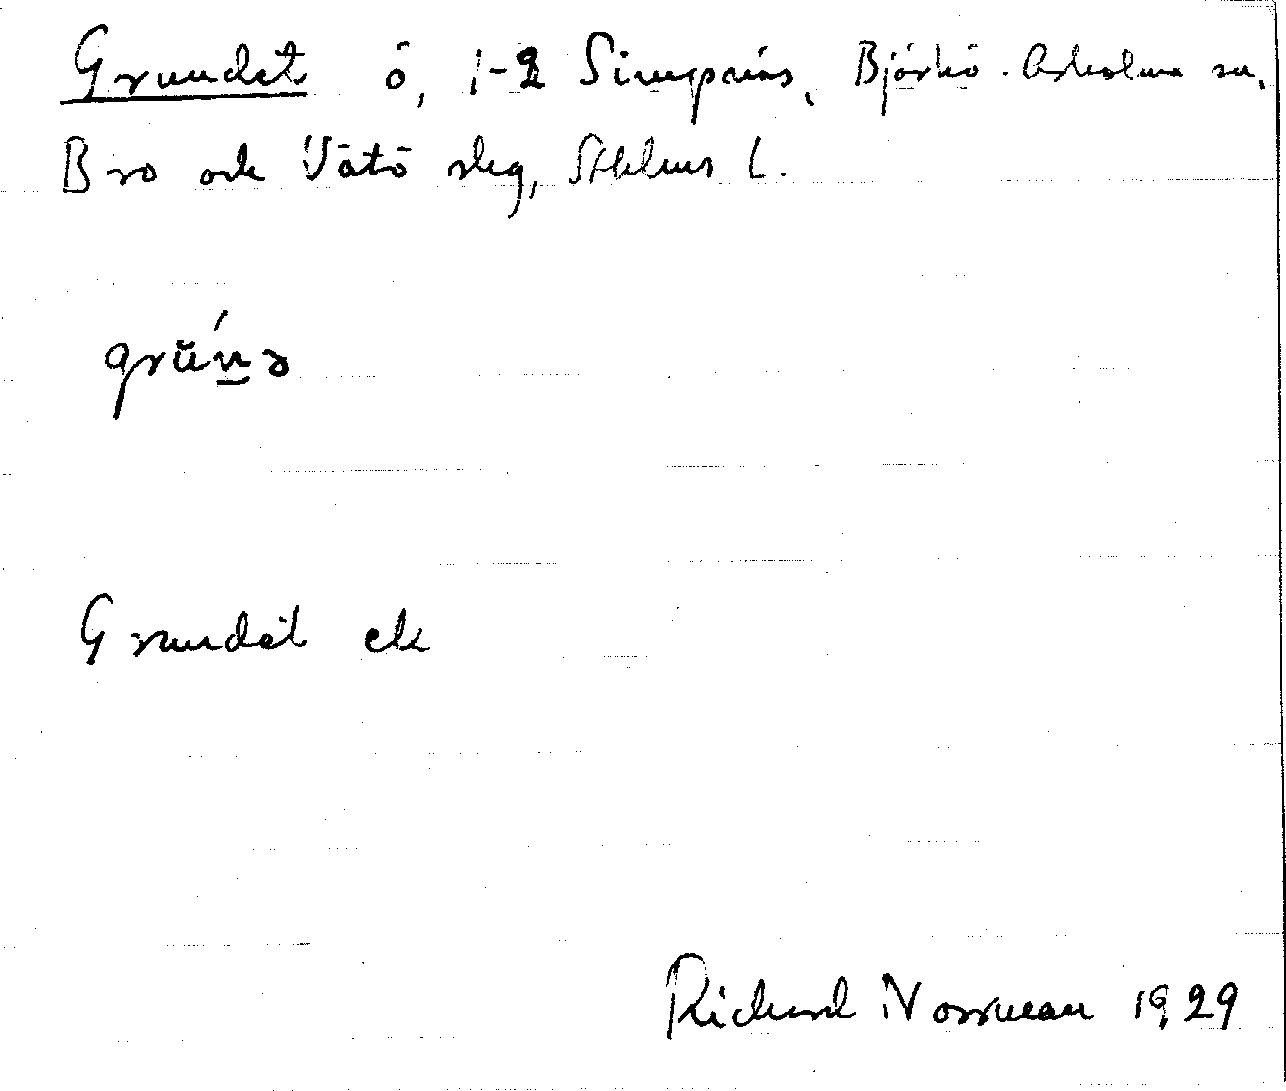 Grundet ö, 1-2 Simpnäs, Björkö-Arholma sn,
Bro och Vätö skg, Sthlms l.
grŭ́n̲ə
Grundet ek
Richard Norrman 1929